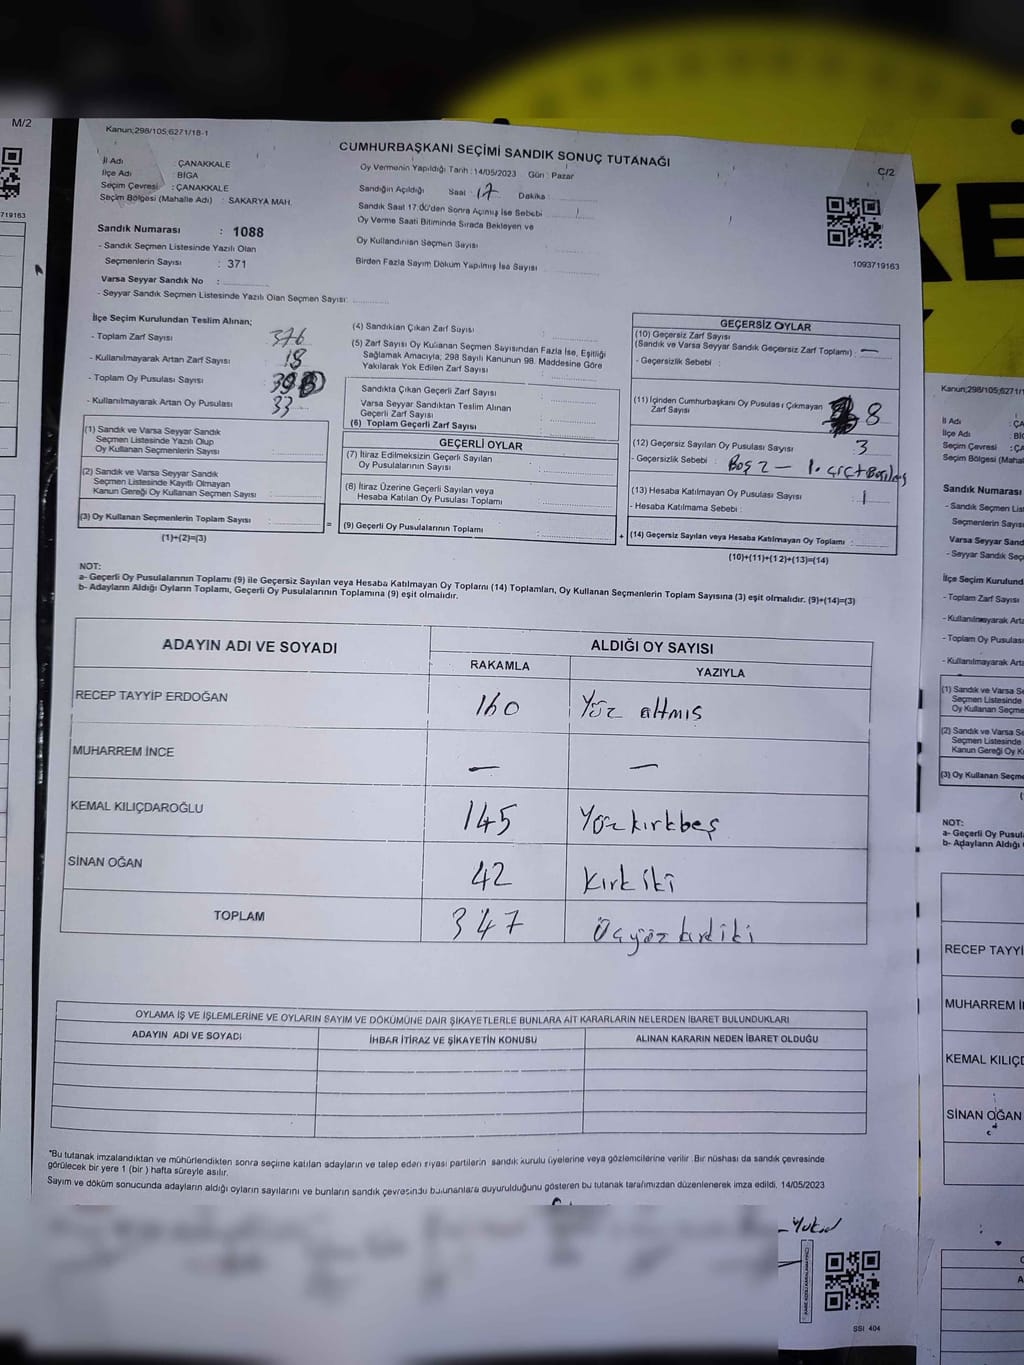 M/2
719163
Kanun;298/105;6271/18-1
CUMHURBAŞKANI SEÇİMİ SANDIK SONUÇ TUTANAĞI
C/2
İl Adı : ÇANAKKALE
İlçe Adı : BİGA
Seçim Çevresi : ÇANAKKALE
Seçim Bölgesi (Mahalle Adı) : SAKARYA MAH.
Sandık Numarası : 1088
- Sandık Seçmen Listesinde Yazılı Olan
Seçmenlerin Sayısı : 371
Varsa Seyyar Sandık No :
- Seyyar Sandık Seçmen Listesinde Yazılı Olan Seçmen Sayısı:
Oy Vermenin Yapıldığı Tarih : 14/05/2023 Gün : Pazar
Sandığın Açıldığı Saat : 17 Dakika :
Sandık Saat 17:00'den Sonra Açılmış İse Sebebi :
Oy Verme Saati Bitiminde Sırada Bekleyen ve
Oy Kullandırılan Seçmen Sayısı :
Birden Fazla Sayım Döküm Yapılmış İse Sayısı :
1093719163
İlçe Seçim Kurulundan Teslim Alınan;
- Toplam Zarf Sayısı : 376
- Kullanılmayarak Artan Zarf Sayısı : 18
- Toplam Oy Pusulası Sayısı :
- Kullanılmayarak Artan Oy Pusulası : 33
(1) Sandık ve Varsa Seyyar Sandık
Seçmen Listesinde Yazılı Olup
Oy Kullanan Seçmenlerin Sayısı :
(2) Sandık ve Varsa Seyyar Sandık
Seçmen Listesinde Kayıtlı Olmayan
Kanun Gereği Oy Kullanan Seçmen Sayısı :
(3) Oy Kullanan Seçmenlerin Toplam Sayısı :
(1)+(2)=(3)
=
(4) Sandıktan Çıkan Zarf Sayısı :
(5) Zarf Sayısı Oy Kullanan Seçmen Sayısından Fazla İse, Eşitliği
Sağlamak Amacıyla; 298 Sayılı Kanunun 98. Maddesine Göre
Yakılarak Yok Edilen Zarf Sayısı :
Sandıkta Çıkan Geçerli Zarf Sayısı :
Varsa Seyyar Sandıktan Teslim Alınan
Geçerli Zarf Sayısı :
(6) Toplam Geçerli Zarf Sayısı :
GEÇERLİ OYLAR
(7) İtiraz Edilmeksizin Geçerli Sayılan
Oy Pusulalarının Sayısı :
(8) İtiraz Üzerine Geçerli Sayılan veya
Hesaba Katılan Oy Pusulası Toplamı :
(9) Geçerli Oy Pusulalarının Toplamı :
+
GEÇERSİZ OYLAR
(10) Geçersiz Zarf Sayısı
(Sandık ve Varsa Seyyar Sandık Geçersiz Zarf Toplamı) : —
- Geçersizlik Sebebi :
(11) İçinden Cumhurbaşkanı Oy Pusulası Çıkmayan
Zarf Sayısı : 8
(12) Geçersiz Sayılan Oy Pusulası Sayısı : 3
- Geçersizlik Sebebi : Boş 2 — 1.
(13) Hesaba Katılmayan Oy Pusulası Sayısı : 1
- Hesaba Katılmama Sebebi :
(14) Geçersiz Sayılan veya Hesaba Katılmayan Oy Toplamı :
(10)+(11)+(12)+(13)=(14)
NOT:
a- Geçerli Oy Pusulalarının Toplamı (9) ile Geçersiz Sayılan veya Hesaba Katılmayan Oy Toplamı (14) Toplamları, Oy Kullanan Seçmenlerin Toplam Sayısına (3) eşit olmalıdır. (9)+(14)=(3)
b- Adayların Aldığı Oyların Toplamı, Geçerli Oy Pusulalarının Toplamına (9) eşit olmalıdır.
ADAYIN ADI VE SOYADI ALDIĞI OY SAYISI
RAKAMLA YAZIYLA
RECEP TAYYİP ERDOĞAN 160 Yüz altmış
MUHARREM İNCE — —
KEMAL KILIÇDAROĞLU 145 Yüzkırkbeş
SİNAN OĞAN 42 Kırk iki
TOPLAM 347
OYLAMA İŞ VE İŞLEMLERİNE VE OYLARIN SAYIM VE DÖKÜMÜNE DAİR ŞİKAYETLERLE BUNLARA AİT KARARLARIN NELERDEN İBARET BULUNDUKLARI
ADAYIN ADI VE SOYADI İHBAR İTİRAZ VE ŞİKAYETİN KONUSU ALINAN KARARIN NEDEN İBARET OLDUĞU
"Bu tutanak imzalandıktan ve mühürlendikten sonra seçime katılan adayların ve talep eden siyasi partilerin sandık kurulu üyelerine veya gözlemcilerine verilir. Bir nüshası da sandık çevresinde
görülecek bir yere 1 (bir) hafta süreyle asılır.
Sayım ve döküm sonucunda adayların aldığı oyların sayılarını ve bunların sandık çevresinde bulunanlara duyurulduğunu gösteren bu tutanak tarafımızdan düzenlenerek imza edildi. 14/05/2023
SSİ 404
KE
Kanun;298/105;6271/1
İl Adı : ÇA
İlçe Adı : BİG
Seçim Çevresi : ÇA
Seçim Bölgesi (Mahal
Sandık Numarası
- Sandık Seçmen Lis
Seçmenlerin Sayısı
Varsa Seyyar Sand
- Seyyar Sandık Seç
İlçe Seçim Kurulund
- Toplam Zarf Sayısı
- Kullanılmayarak Arta
- Toplam Oy Pusulası
- Kullanılmayarak Arta
(1) Sandık ve Varsa Se
Seçmen Listesinde
Oy Kullanan Seçme
(2) Sandık ve Varsa Se
Seçmen Listesinde
Kanun Gereği Oy K
(3) Oy Kullanan Seçme
NOT:
a- Geçerli Oy Pusul
b- Adayların Aldığı
RECEP TAYYİ
MUHARREM İ
KEMAL KILIÇD
SİNAN OĞAN